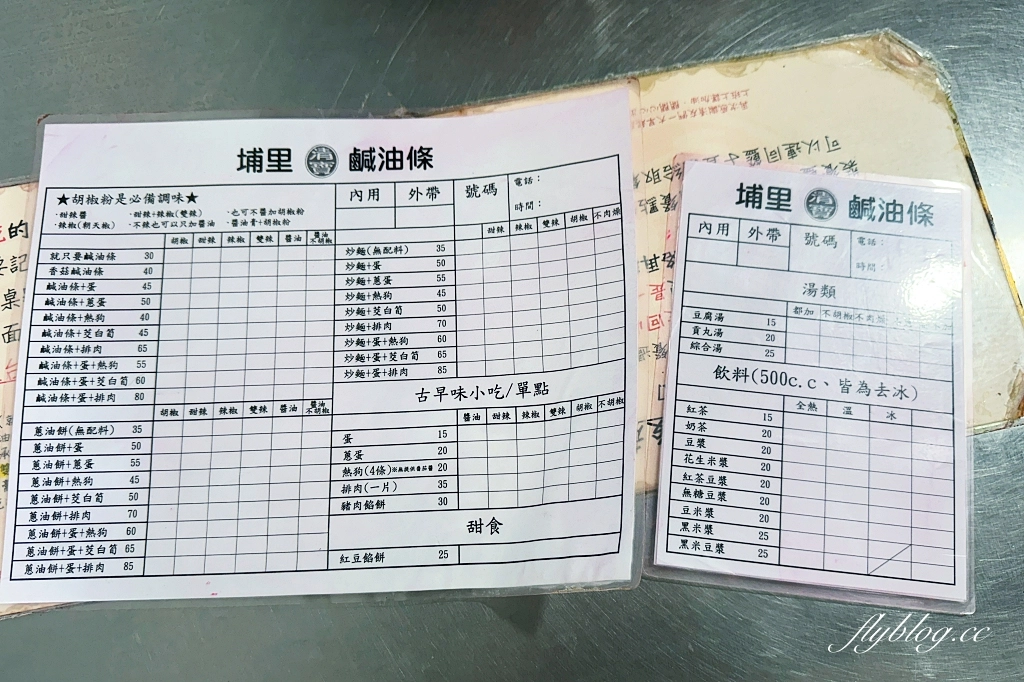 埔里 鹹油條
★胡椒粉是必備調味★
·甜辣醬 ·甜辣+辣椒(雙辣) ·也可不醬加胡椒粉
·辣椒(朝天椒) ·不辣也可以只加醬油 ·醬油膏+胡椒粉
內用 外帶 號碼 電話：
時間：
胡椒 甜辣 辣椒 雙辣 醬油 醬油不胡椒
就只要鹹油條 30
香菇鹹油條 40
鹹油條+蛋 45
鹹油條+蔥蛋 50
鹹油條+熱狗 40
鹹油條+茭白筍 45
鹹油條+排肉 65
鹹油條+蛋+熱狗 55
鹹油條+蛋+茭白筍 60
鹹油條+蛋+排肉 80
胡椒 甜辣 辣椒 雙辣 醬油 醬油不胡椒
蔥油餅(無配料) 35
蔥油餅+蛋 50
蔥油餅+蔥蛋 55
蔥油餅+熱狗 45
蔥油餅+茭白筍 50
蔥油餅+排肉 70
蔥油餅+蛋+熱狗 60
蔥油餅+蛋+茭白筍 65
蔥油餅+蛋+排肉 85
甜辣 辣椒 雙辣 胡椒 不肉燥
炒麵(無配料) 35
炒麵+蛋 50
炒麵+蔥蛋 55
炒麵+熱狗 45
炒麵+茭白筍 50
炒麵+排肉 70
炒麵+蛋+熱狗 60
炒麵+蛋+茭白筍 65
炒麵+蛋+排肉 85
古早味小吃/單點
醬油 甜辣 辣椒 雙辣 胡椒 不胡椒
蛋 15
蔥蛋 20
熱狗(4條)※無提供番茄醬 20
排肉(一片) 35
豬肉餡餅 30
甜食
紅豆餡餅 25
埔里 鹹油條
內用 外帶 號碼 電話：
時間：
湯類
都加 不胡椒 不肉燥
豆腐湯 15
貢丸湯 20
綜合湯 25
飲料(500c.c、皆為去冰)
全熱 溫 冰
紅茶 15
奶茶 20
豆漿 20
花生米漿 20
紅茶豆漿 20
無糖豆漿 20
豆米漿 20
黑米漿 25
黑米豆漿 25
可以連同籃子
flyblog.cc